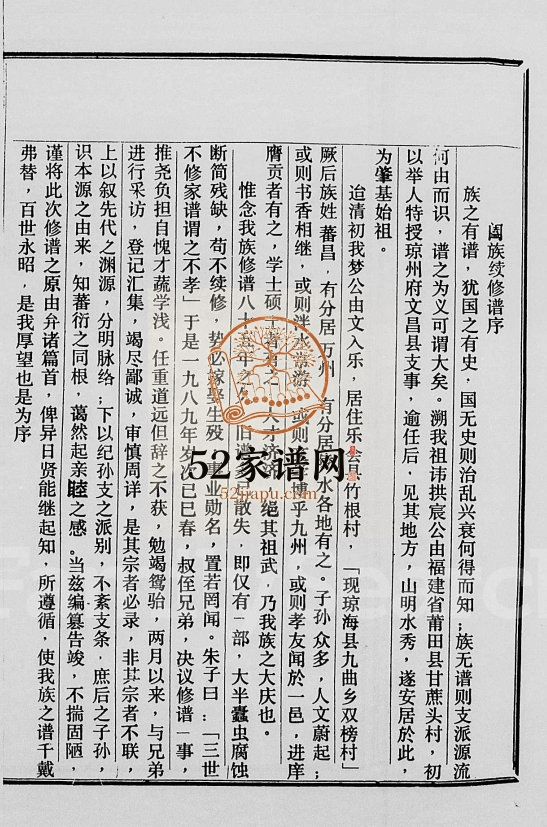 阖族续修谱序
族之有谱，犹国之有史，国无史则治乱兴衰何得而知；族无谱则支派源流
何由而识，谱之为义可谓大矣。溯我祖讳拱宸公由福建省莆田县甘蔗头村，初
以举人特授琼州府文昌县支事，逾任后，见其地方，山明水秀，遂安居於此，
为肇基始祖。
迨清初我梦公由文入乐，居住乐会县竹根村，「现琼海县九曲乡双榜村」
厥后族姓 蕃昌，有分居 万州， 有分居 水各地有之。子孙 众多，人文蔚起；
或则书香相继，或则泮水常游，或则 博乎九州，或则孝友闻於一邑，进庠
膺贡者有之，学士硕士者有之，人才济济，绝其祖武，乃我族之大庆也。
惟念我族修谱八十五年之 ，旧谱 已散失，即仅有一部，大半蠹虫腐蚀
断简残缺，苟不续修，势必嫁娶生殁，事业勋名，置若罔闻。朱子曰：「三世
不修家谱谓之不孝」于是一九八九年岁次己巳春，叔侄兄弟，决议修谱一事，
推尧负担自愧才蔬学浅。任重道远但辞之不获，勉竭鸳骀，两月以来，与兄弟
进行采访，登记汇集，竭尽鄙诚，审慎周详，是其宗者必录，非其宗者不联，
上以叙先代之渊源，分明脉络；下以纪孙支之派别，不紊支条．庶后之子孙，
识本源之由来，知蕃衍之同根，蔼然起亲睦之感。当兹编纂告竣，不揣固陋，
谨将此次修谱之原由弁诸篇首，俾异日贤能继起知，所遵循，使我族之谱千戴
弗替，百世永昭，是我厚望也是为序
52家谱网
52jiapu.com